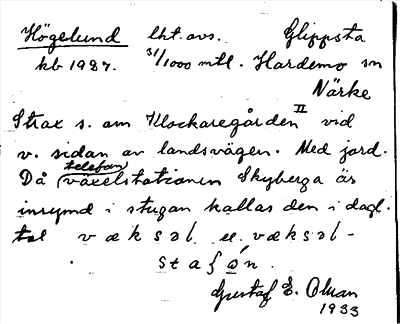 Högelund lht. avs. Glippsta
kb 1927. 31/1000 mtl. Hardemo sn
Närke
Strax s. om Klockaregården II vid
v. sidan av landsvägen. Med jord.
Då telefon
växelstationen Skyberga är
inrymd i stugan kallas den i dagl.
tal v æ k s ə l el. v æ k s ə l -
s t a ʃ ó n.
Gustaf E. Olsson
1933